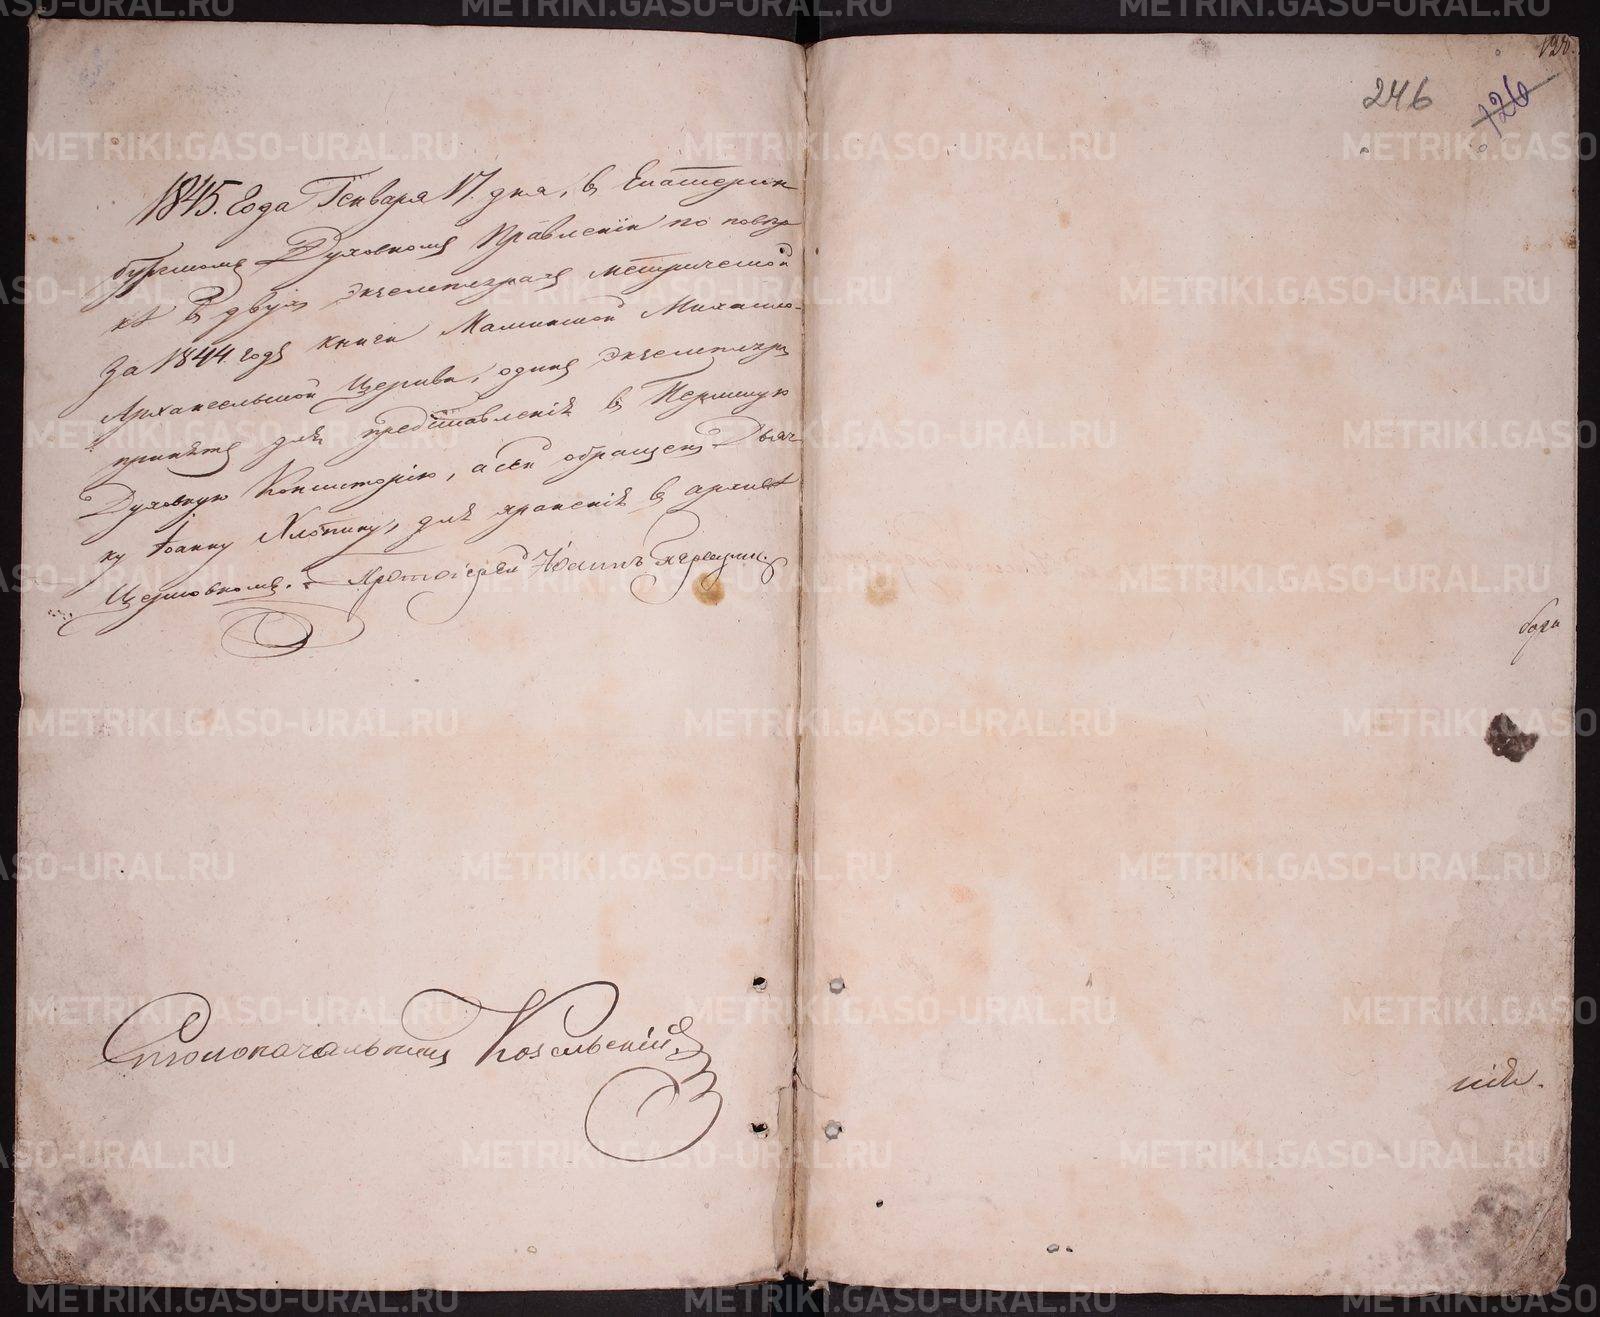 1845. Года Генваря 17. дня, въ Екатерин
бургскомъ Духовномъ Правленіи по повѣр
кѣ въ двухъ экземплярахъ метрической
за 1844. годъ книги Михаило-
Архангельской Церкви, одинъ экземпляръ
принятъ для представленія въ Пермскую
Духовную Консисторію, а сей обращенъ Дьяч
ку Іоанну Хлопину, для храненія въ архивѣ
Церковномъ. Протоіерей Іоаннъ
Столоначальникъ Козельскій
246
126
128.
METRIKI.GASO-URAL.RU